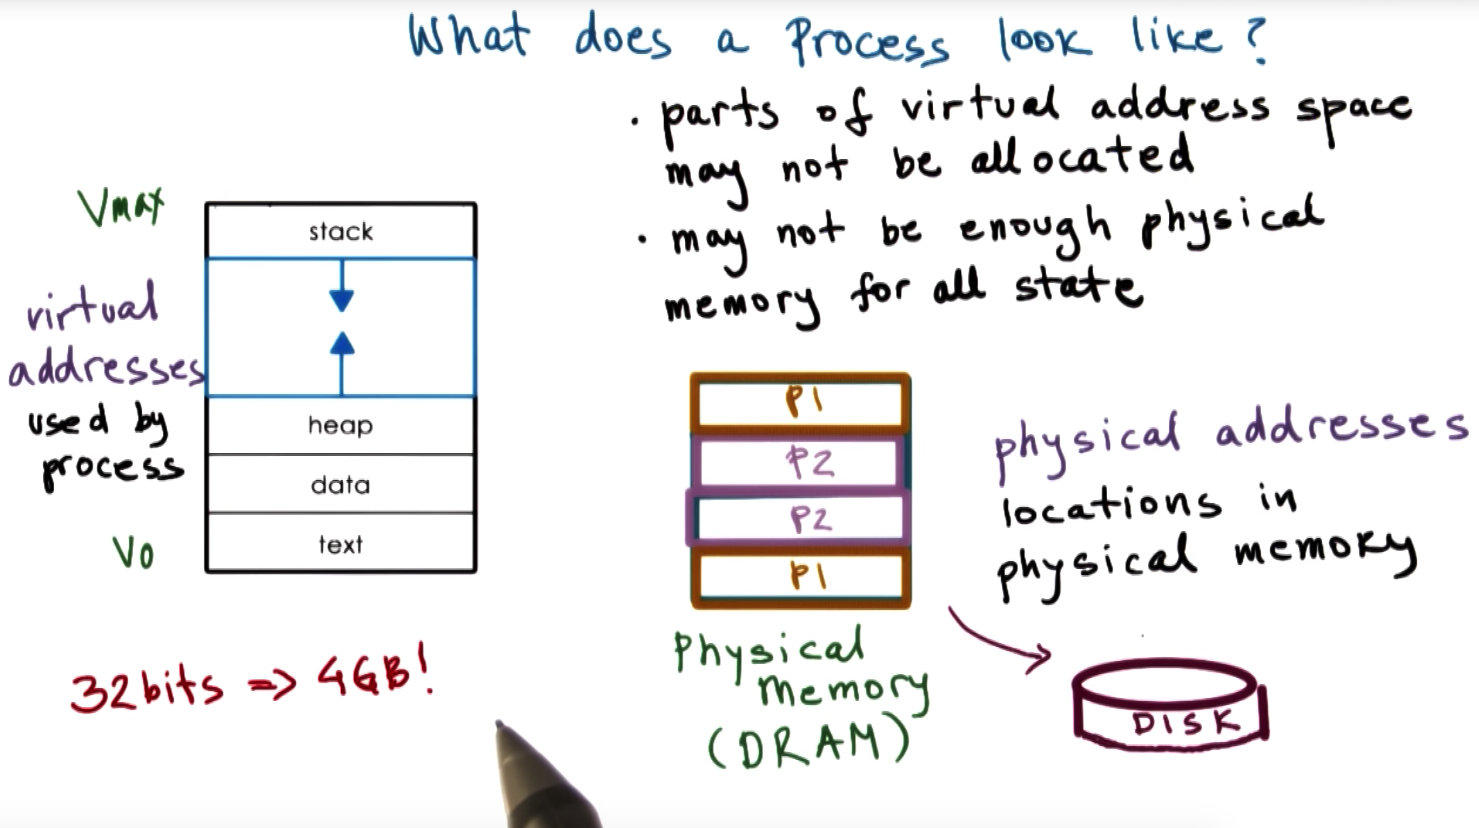 What does a Process look like?
• parts of virtual address space
may not be allocated
• may not be enough physical
memory for all state
Vmax
virtual
addresses
used by
process
Vo
stack
heap
data
text
32bits => 4GB!
P1
P2
P2
P1
Physical
Memory
(DRAM)
physical addresses
locations in
physical memory
DISK